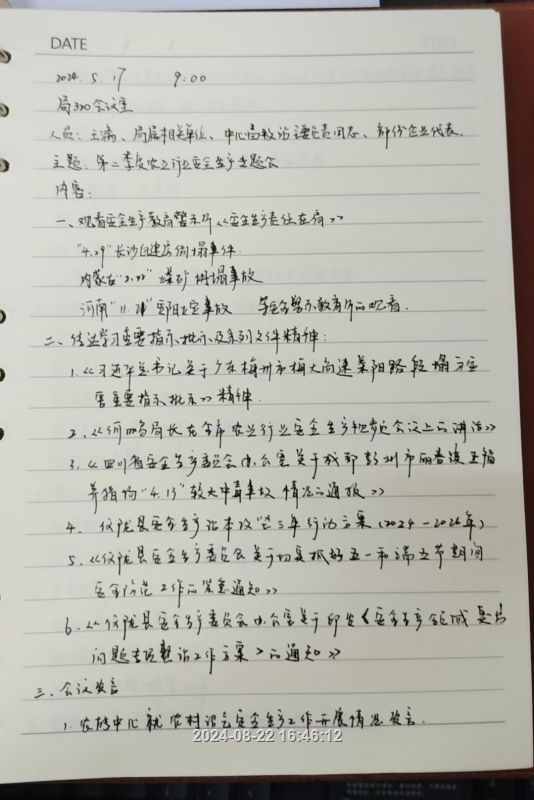 DATE
2024. 5. 17 9:00
局320会议室
人员：王滴、局属相关单位、中心负责同志、部份企业代表.
主题：第二季度农业行业安全生产专题会
内容：
一、观看安全生产教育警示片《安全生产责任在肩》
"4.29"长沙自建房倒塌事件.
内蒙古"2.22"煤矿坍塌事故
河南"11.21"安阳火灾事故 等安全警示教育片的观看.
二、传达学习重要指示、批示及系列文件精神：
1.《习近平总书记关于广东梅州市梅大高速茶阳路段塌方灾
害重要指示批示》精神.
2、《何四局长在全市农业行业安全生产会议上的讲话》
3、《四川省安全生产委员会办公室关于成都彭州市丽春镇
养殖场"4.13"较大中毒事故情况的通报》
4. 仪陇县安全生产治本攻坚三年行动方案（2024-2026年）
5、《仪陇县安全生产委员会关于切实抓好五一和端午节期间
安全防范工作的紧急通知》
6.《仪陇县安全生产委员会办公室关于印发《安全生产领域突出
问题专项整治工作方案》的通知》
三、会议发言
1. 农技中心就农村沼气安全生产工作开展情况发言.
2024-08-22 16:46:12